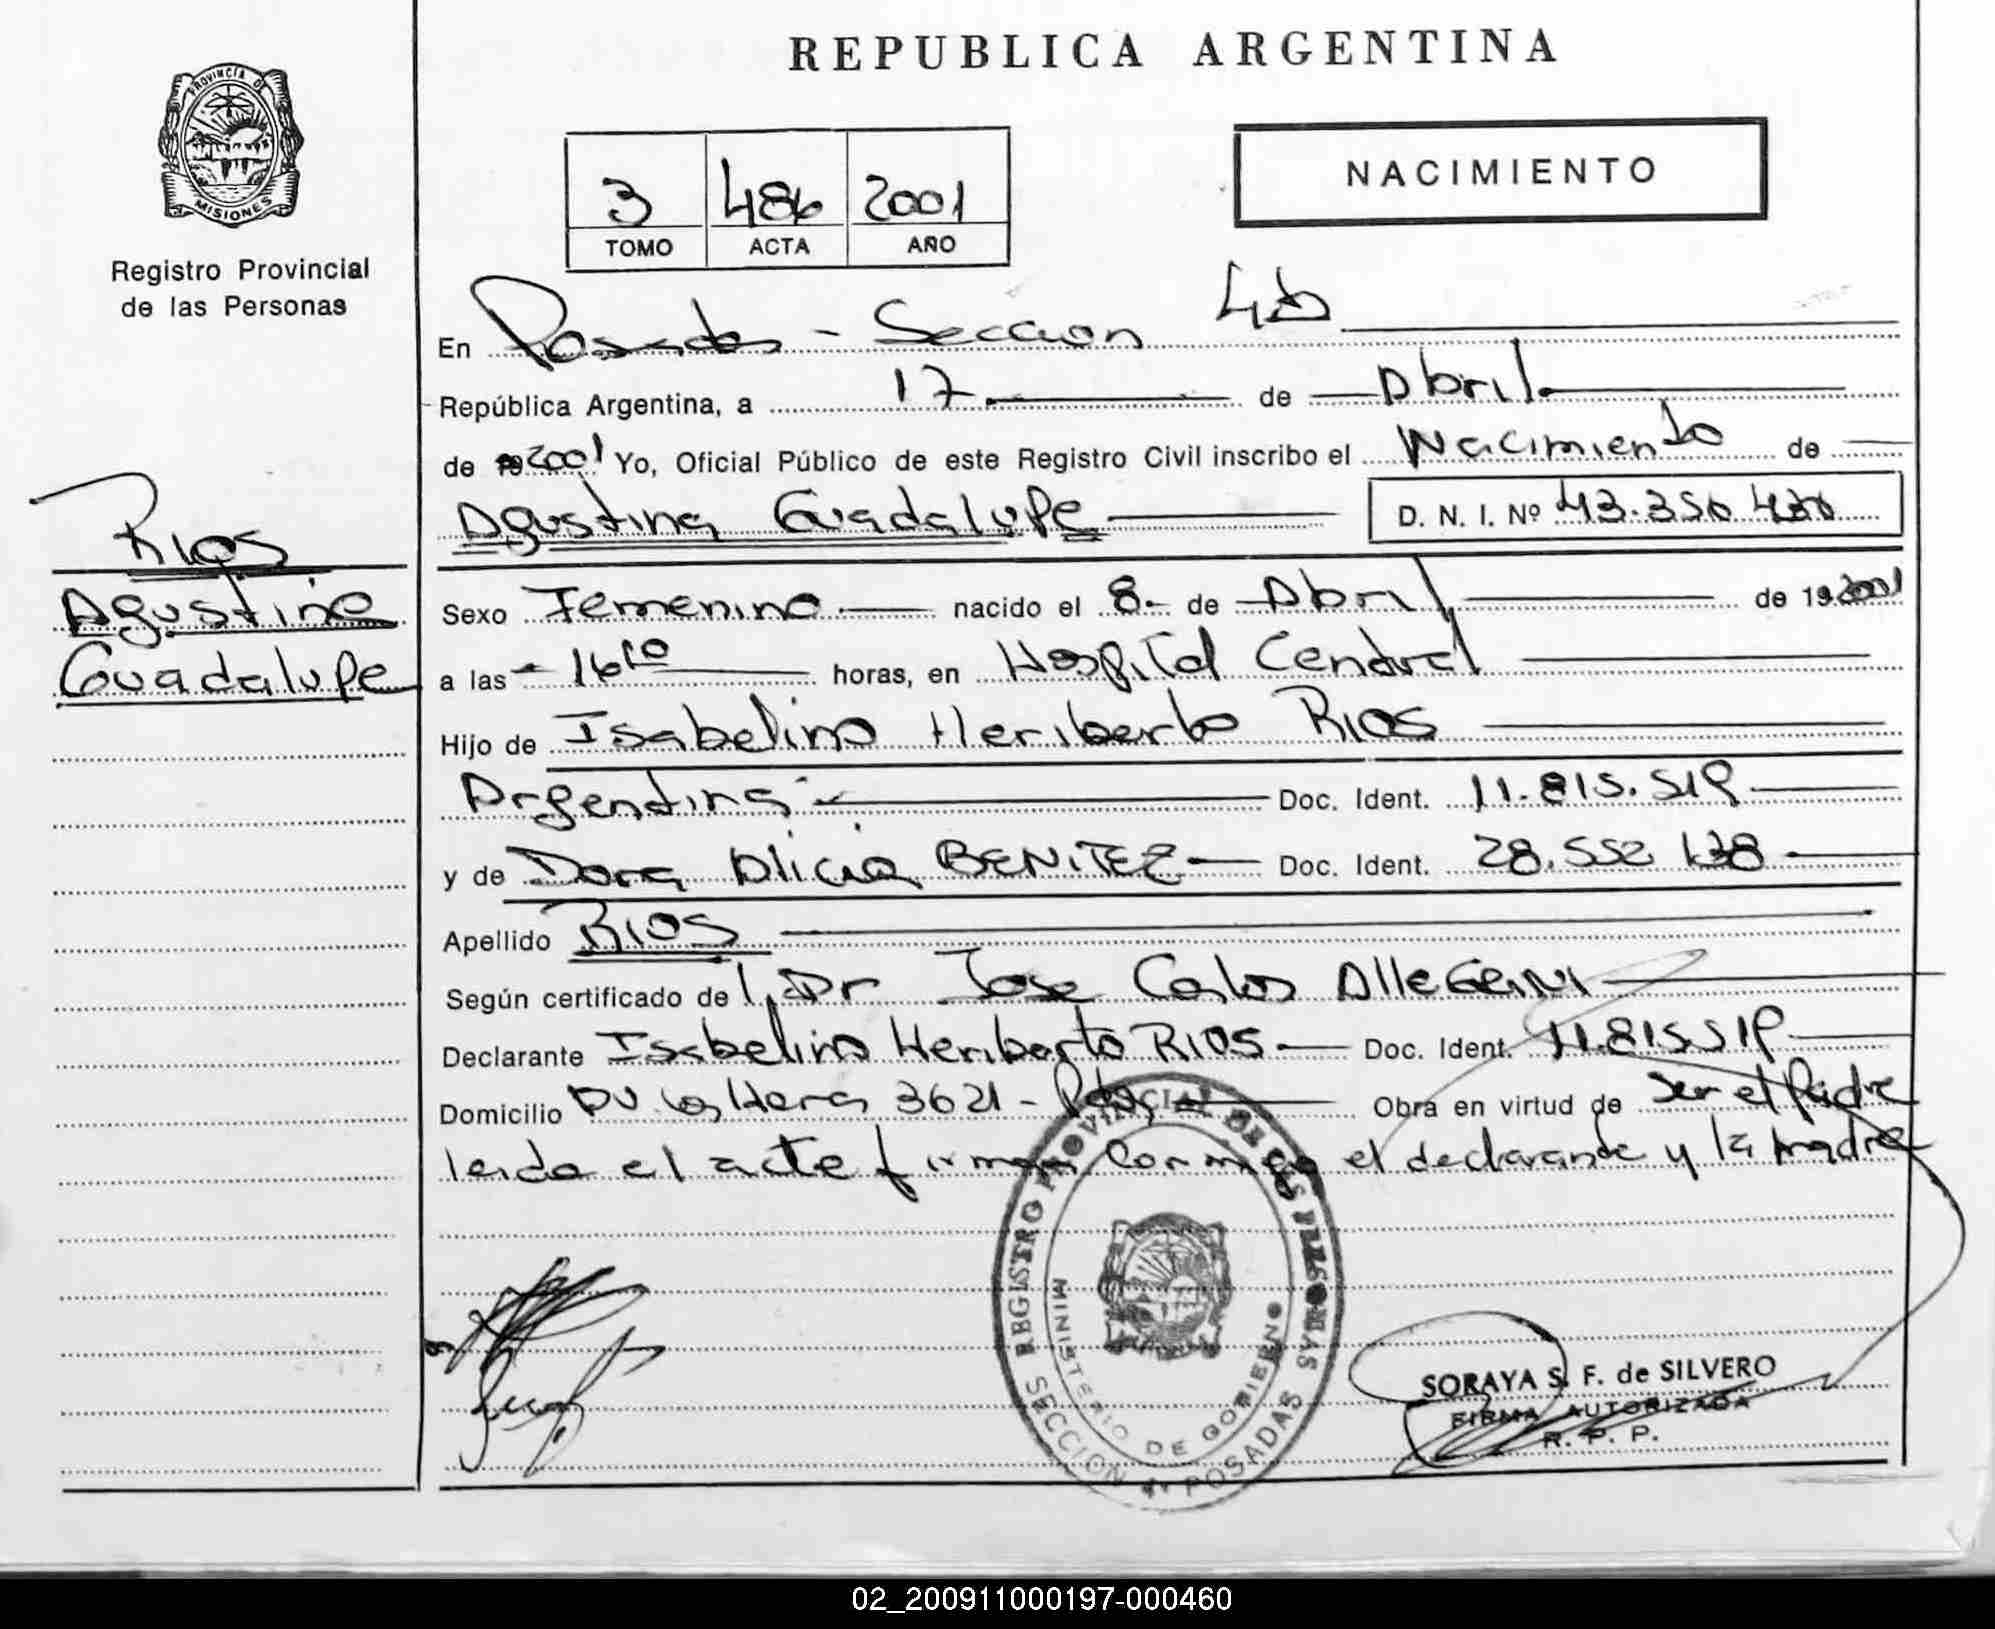 REPUBLICA ARGENTINA
PROVINCIA DE
MISIONES
Registro Provincial
de las Personas
3 486 2001
TOMO ACTA AÑO
NACIMIENTO
En Posadas - Seccion 4ta
República Argentina, a 17 de Abril
de 2001 Yo, Oficial Público de este Registro Civil inscribo el Nacimiento de
Agustina Guadalupe D. N. I. Nº 43.350.430
Rios
Agustina
Guadalupe
Sexo Femenino nacido el 8 de Abril de 19 2001
a las 16 10 horas, en Hospital Central
Hijo de Isabelino Heriberto Rios
Argentina Doc. Ident. 11.815.519
y de Dora Alicia BENITEZ Doc. Ident. 28.552.138
Apellido RIOS
Según certificado de Dr Jose Carlos Allegrini
Declarante Isabelino Heriberto RIOS Doc. Ident. 11.815.519
Domicilio AV Las Heras 3621 - Pdas Obra en virtud de ser el Padre
leida el acta firman conmigo el declarante y la madre
REGISTRO PROVINCIAL DE LAS PERSONAS
MINISTERIO DE GOBIERNO
SECCION POSADAS
SORAYA S. F. de SILVERO
FIRMA AUTORIZADA
R. P. P.
02_200911000197-000460